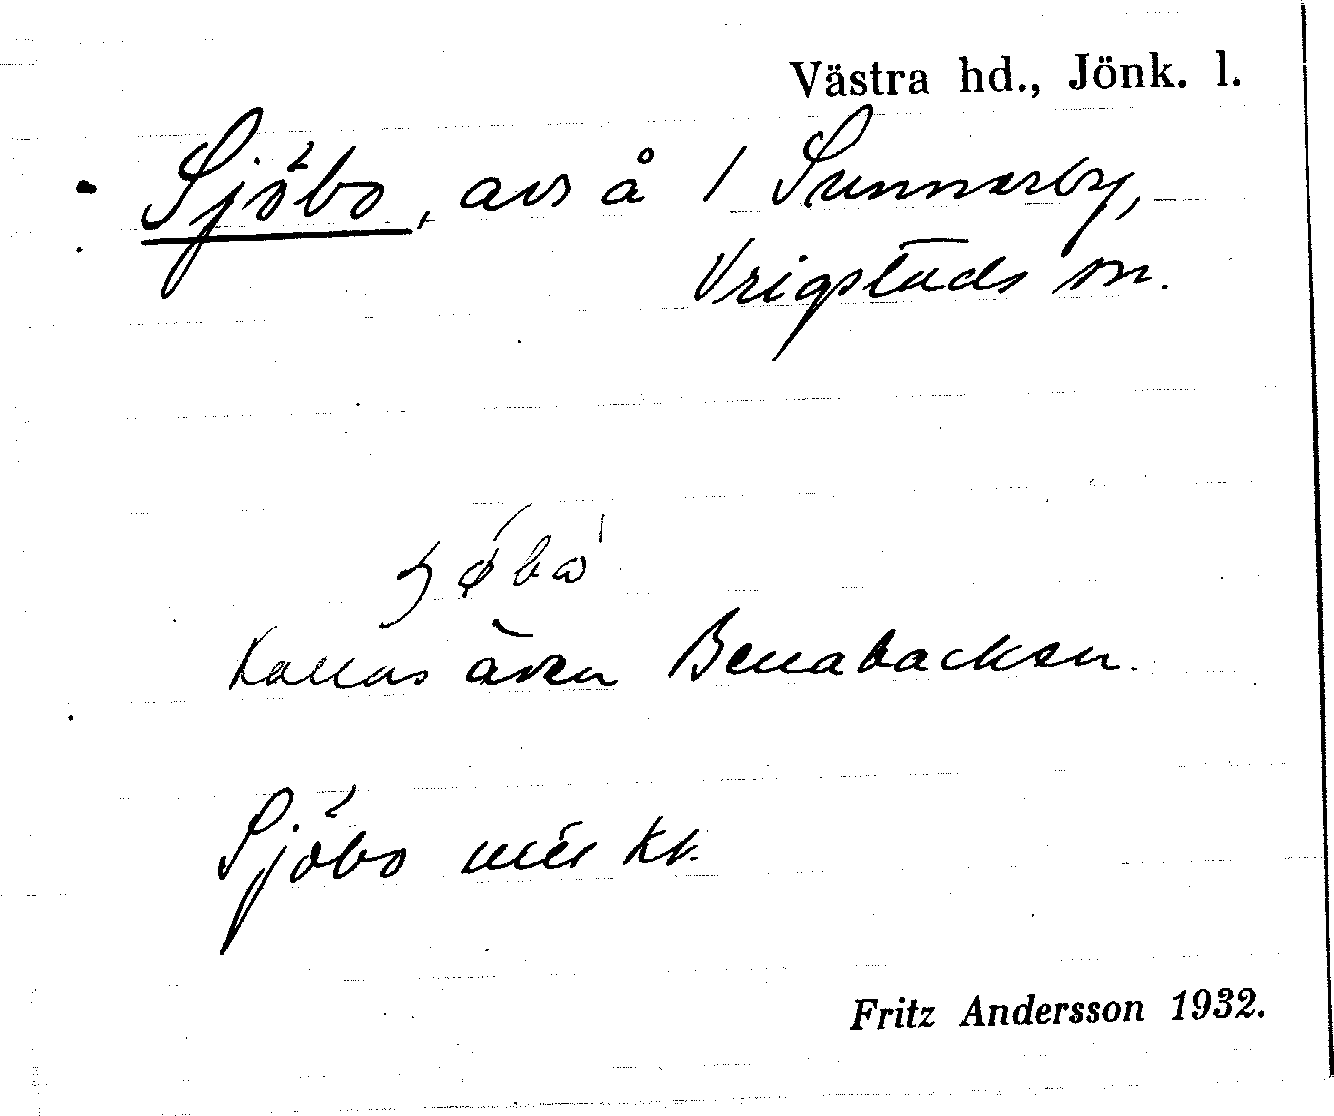 Västra hd., Jönk. l.
Sjöbo, avs å 1 Sunnerby,
Vrigstads sn.
Kallas även Benabacken.
Sjöbo mil kt.
Fritz Andersson 1932.